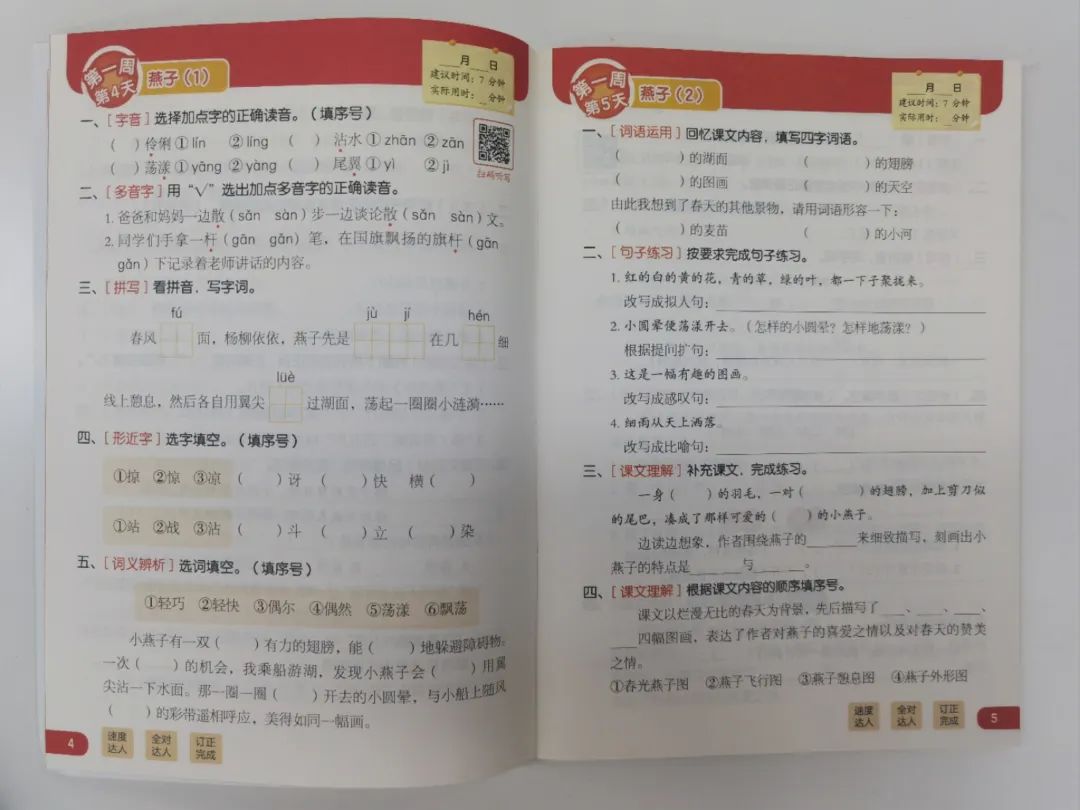 第一周
第4天
燕子（1）
___月___日
建议时间：7 分钟
实际用时：__分钟
一、[ 字音 ] 选择加点字的正确读音。（填序号）
（　）伶俐 ①lín　②líng　（　）沾水 ①zhān ②zān
（　）荡漾 ①yāng ②yàng　（　）尾翼 ①yì　②jì
扫码听写
二、[ 多音字 ] 用“√”选出加点多音字的正确读音。
1. 爸爸和妈妈一边散（sǎn　sàn）步一边谈论散（sǎn　sàn）文。
2. 同学们手拿一杆（gān　gǎn）笔，在国旗飘扬的旗杆（gān
gǎn）下记录着老师讲话的内容。
三、[ 拼写 ] 看拼音，写字词。
fú　jù　jí　hén
春风　面，杨柳依依，燕子先是　在几　细
lüè
线上憩息，然后各自用翼尖　过湖面，荡起一圈圈小涟漪……
四、[ 形近字 ] 选字填空。（填序号）
①掠　②惊　③凉　（　）讶　（　）快　横（　）
①站　②战　③沾　（　）斗　（　）立　（　）染
五、[ 词义辨析 ] 选词填空。（填序号）
①轻巧　②轻快　③偶尔　④偶然　⑤荡漾　⑥飘荡
小燕子有一双（　）有力的翅膀，能（　）地躲避障碍物。
一次（　）的机会，我乘船游湖，发现小燕子会（　）用翼
尖沾一下水面。那一圈一圈（　）开去的小圆晕，与小船上随风
（　）的彩带遥相呼应，美得如同一幅画。
4
速度
达人
全对
达人
订正
完成
第一周
第5天
燕子（2）
___月___日
建议时间：7 分钟
实际用时：__分钟
一、[ 词语运用 ] 回忆课文内容，填写四字词语。
（　）的湖面　（　）的翅膀
（　）的图画　（　）的天空
由此我想到了春天的其他景物，请用词语形容一下：
（　）的麦苗　（　）的小河
二、[ 句子练习 ] 按要求完成句子练习。
1. 红的白的黄的花，青的草，绿的叶，都一下子聚拢来。
改写成拟人句：
2. 小圆晕便荡漾开去。（怎样的小圆晕？怎样地荡漾？）
根据提问扩句：
3. 这是一幅有趣的图画。
改写成感叹句：
4. 细雨从天上洒落。
改写成比喻句：
三、[ 课文理解 ] 补充课文，完成练习。
一身（　）的羽毛，一对（　）的翅膀，加上剪刀似
的尾巴，凑成了那样可爱的（　）的小燕子。
边读边想象，作者围绕燕子的______来细致描写，刻画出小
燕子的特点是______与______。
四、[ 课文理解 ] 根据课文内容的顺序填序号。
课文以烂漫无比的春天为背景，先后描写了___、___、___、
___四幅图画，表达了作者对燕子的喜爱之情以及对春天的赞美
之情。
①春光燕子图　②燕子飞行图　③燕子憩息图　④燕子外形图
速度
达人
全对
达人
订正
完成
5